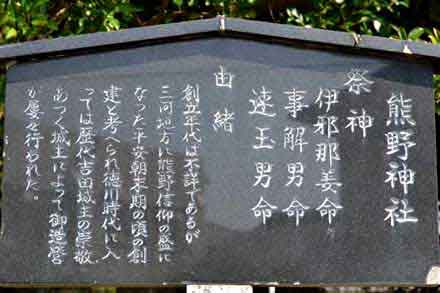 熊野神社
祭神
伊邪那美命
事解男命
速玉男命
由緒
創立年代は不詳であるが
三河地方に熊野信仰の盛に
なった平安朝末期の頃の創
建と考へられ徳川時代に入
っては歴代吉田城主の崇敬
あつく城主によって御造営
が屡々行われた。